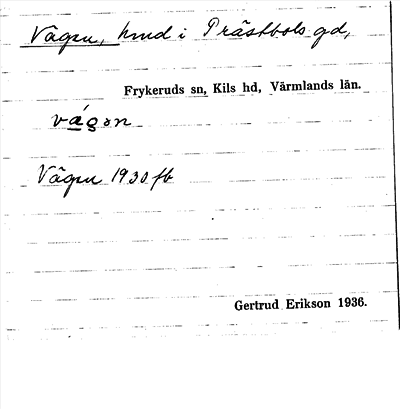 Vägen, hmd i Prästbols gd,
Frykeruds sn, Kils hd, Värmlands län.
vágən
Vägen 1930 fb
Gertrud Erikson 1936.